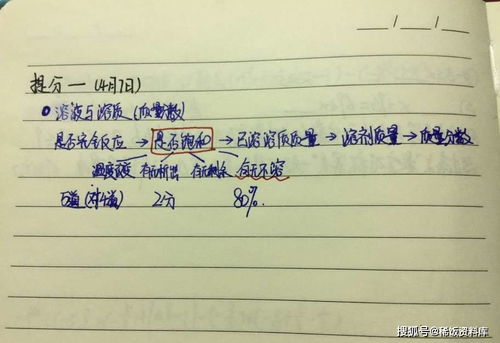 提分一(4月7日)
溶液与溶质(质量分数)
是否完全反应→是否饱和→已溶溶质质量→溶剂质量→质量分数
温度改变 有无析出 有无剩余 有无不溶
5道(对4道) 2分 80%.
搜狐号@稀饭资料库